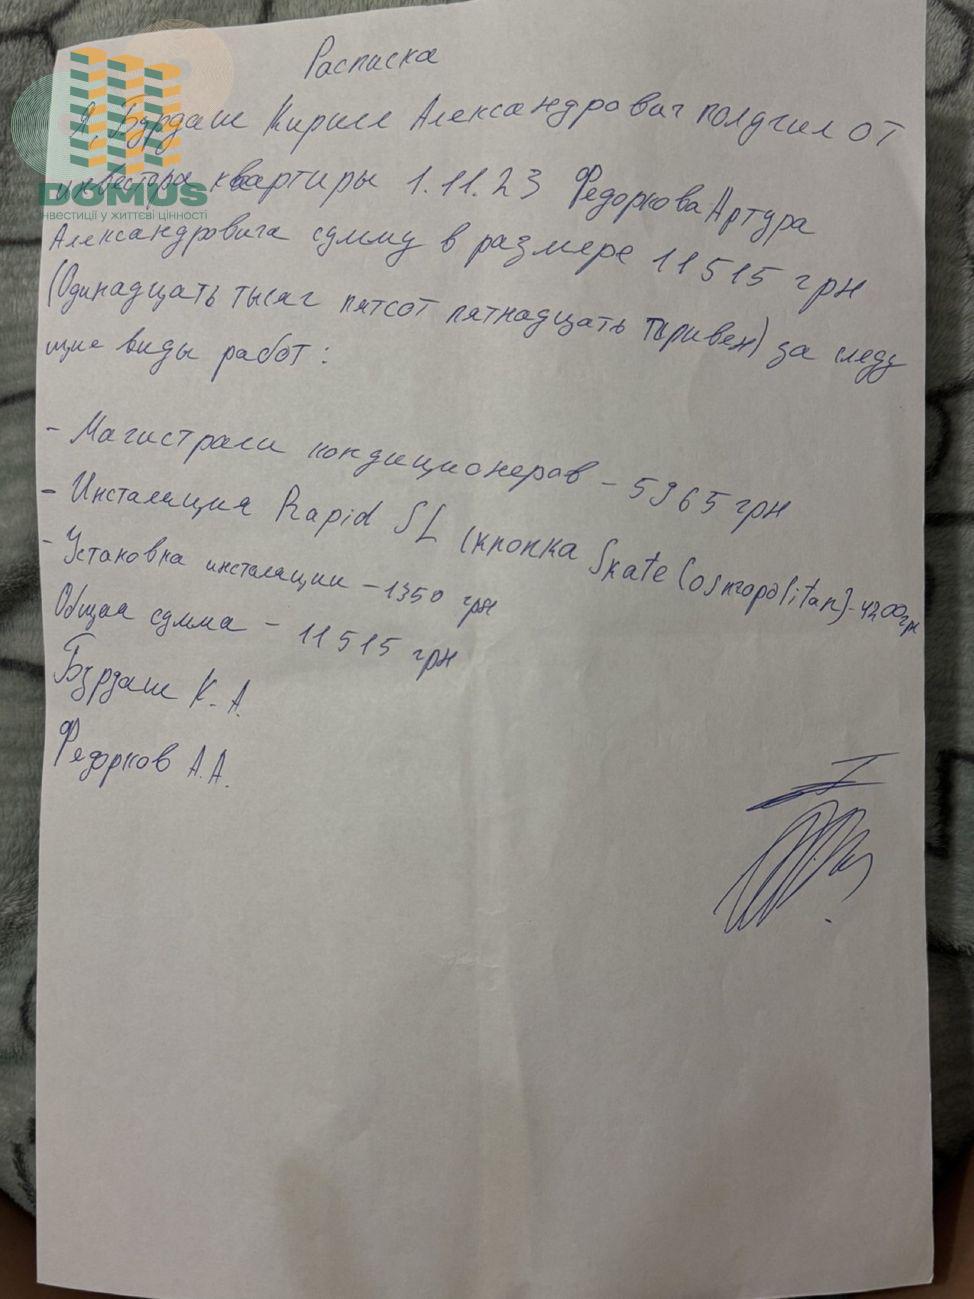 Расписка
Я, Бурдаш Кирилл Александрович получил от
инвестора квартиры 1.11.23 Федоркова Артура
Александровича сумму в размере 11515 грн
(Одинадцать тысяч пятсот пятнадцать гривен) за следу
щие виды работ:
- Магистрали кондиционеров - 5965 грн
- Инсталяция Rapid SL (кнопка Skate Cosmopolitan) - 4200 грн
- Установка инсталяции - 1350 грн
Общая сумма - 11515 грн
Бурдаш К. А.
Федорков А.А.
DOMUS
інвестиції у життєві цінності